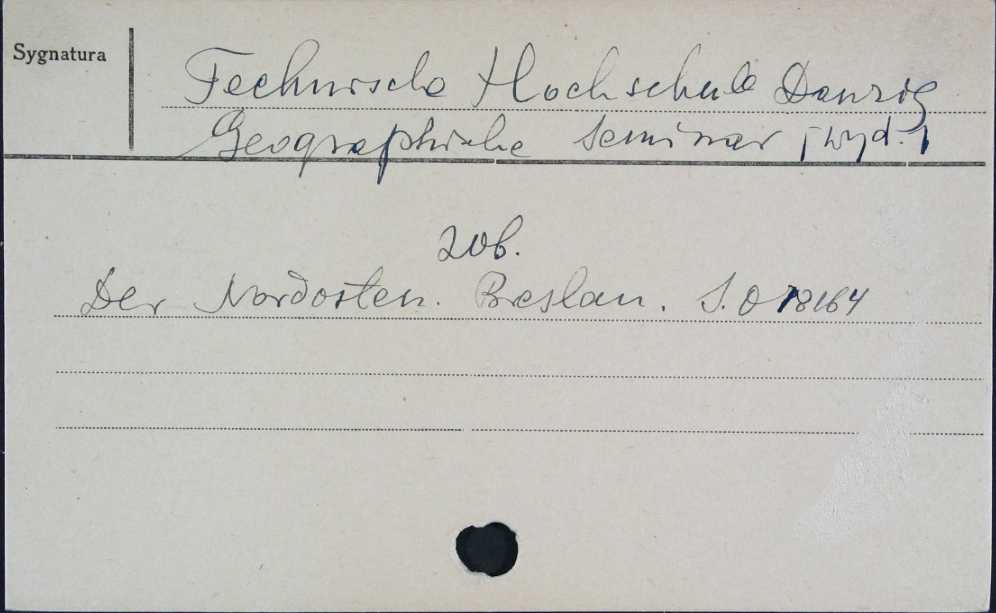 Sygnatura
Technische Hochschule Danzig
Geographische Seminar [wyd.]
zob.
Der Nordosten. Breslau. S.O 78164